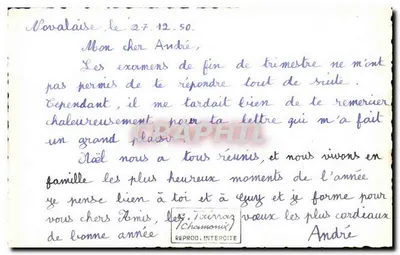 Novalaise, le 27.12.50.
Mon cher André,
Les examens de fin de trimestre ne m'ont
pas permis de te répondre tout de suite.
Cependant, il me tardait bien de te remercier
chaleureusement pour ta lettre qui m'a fait
un grand plaisir.
Noël nous a tous réunis, et nous vivons en
famille les plus heureux moments de l'année
Je pense bien à toi et à Guy et je forme pour
vous chers Amis, les vœux les plus cordiaux
de bonne année
André
Chamonix
REPROD. INTERDITE